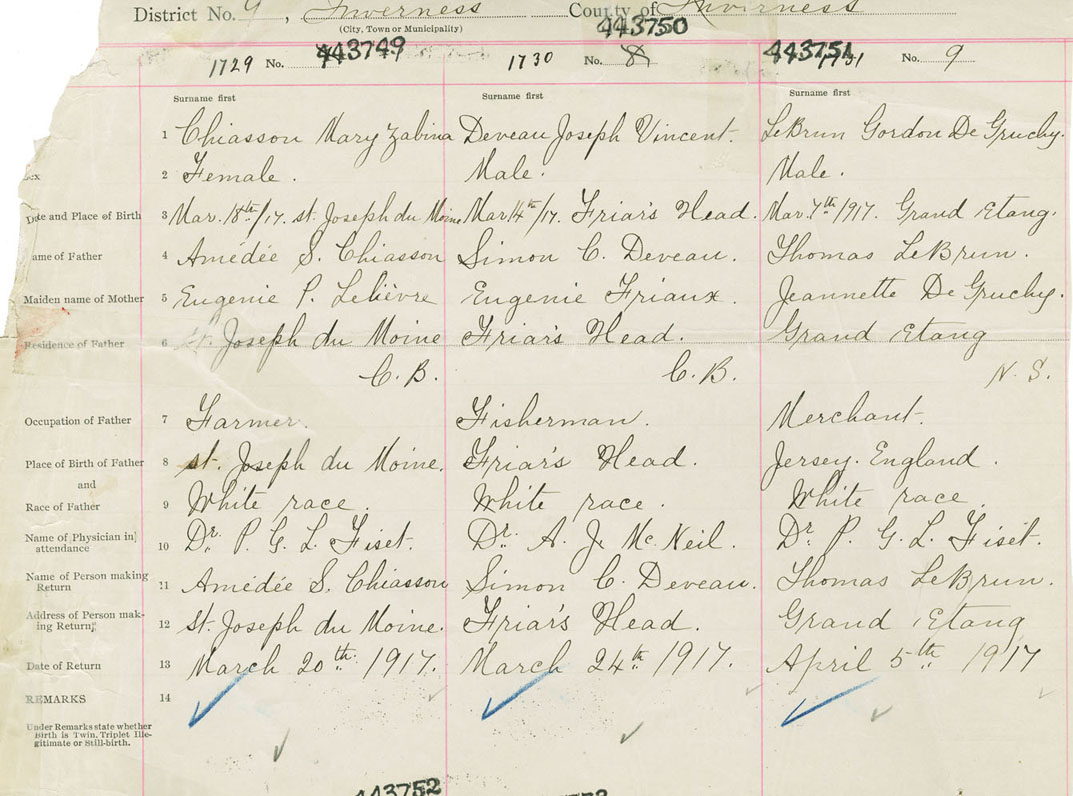 District No. 9, Inverness County of Inverness
(City, Town or Municipality)
443749 443750 443751
1729 No. 1730 No. 8 1731 No. 9
Surname first Surname first Surname first
1 Chiasson Mary Zabina Deveau Joseph Vincent. LeBrun Gordon De Gruchy.
2 Female. Male. Male.
Date and Place of Birth 3 Mar. 18th/17. St. Joseph du Moine Mar. 14th/17. Friar's Head. Mar. 7th/917. Grand Etang.
ame of Father 4 Amédée S. Chiasson Simon C. Deveau. Thomas LeBrun.
Maiden name of Mother 5 Eugenie P. Lelièvre Eugenie Friaux. Jeannette De Gruchy.
Residence of Father 6 St. Joseph du Moine Friar's Head. Grand Etang
C. B. C. B. N. S.
Occupation of Father 7 Farmer. Fisherman. Merchant.
Place of Birth of Father 8 St. Joseph du Moine. Friar's Head. Jersey. England.
and
Race of Father 9 White race. White race. White race.
Name of Physician in
attendance 10 Dr. P. G. L. Fiset. Dr. A. J. McNeil. Dr. P. G. L. Fiset.
Name of Person making
Return 11 Amédée S. Chiasson Simon C. Deveau. Thomas LeBrun.
Address of Person mak-
ing Return 12 St. Joseph du Moine. Friar's Head. Grand Etang
Date of Return 13 March 20th 1917. March 24th 1917. April 5th 1917
REMARKS 14
Under Remarks state whether
Birth is Twin, Triplet Ille-
gitimate or Still-birth.
443752